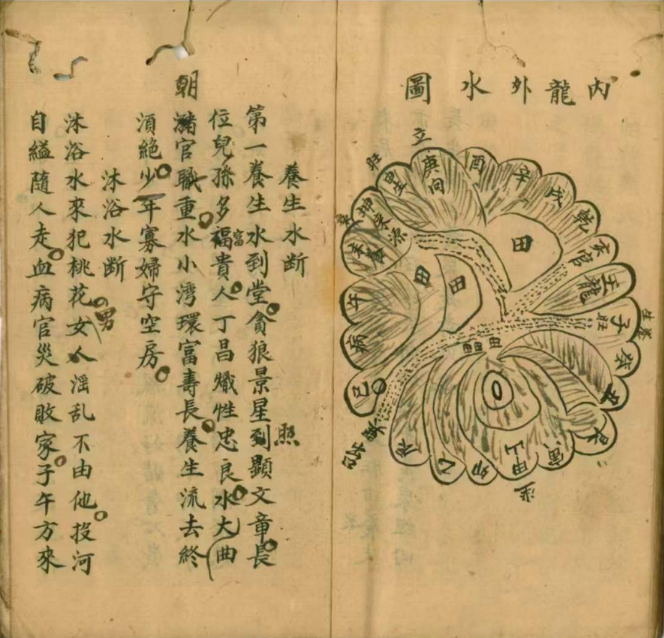 内龍外水圖
立
庚向
酉
辛
戌
乾
亥官
壬龍
子旺
癸
丑
艮
寅
甲山
卯
乙
辰
巳
病
午
田
田
田
養生水断
第一養生水到堂貪狼景星到顯文章長
照
位兒孫多福貴人丁昌熾牲忠良水大曲
富
朝
瀦官職重水小湾環富壽長養生流去終
湏絶少年寡婦守空房
沐浴水断
沐浴水來犯桃花女人淫乱不由他投河
男
自縊隨人走血病官災破敗家子午方來